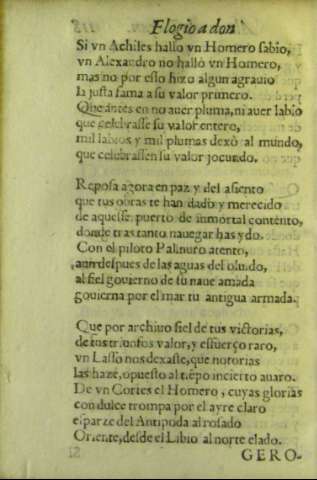 Elogio a don
Si vn Achiles hallo vn Homero sabio,
vn Alexandro no hallò vn Homero,
mas no por esso hizo algun agrauio
la justa fama a su valor primero.
Que antes en no auer pluma, ni auer labio
que celebrasse su valor entero,
mil labios y mil plumas dexò al mundo,
que celebrassen su valor jocundo.
Reposa agora en paz y del asiento
que tus obras te han dado y merecido
de aquesse puerto de inmortal contento,
donde tras tanto nauegar has ydo.
Con el piloto Palinuro atento,
aun despues de las aguas del oluido,
al fiel gouierno de su naue amada
gouierna por el mar tu antigua armada.
Que por archiuo fiel de tus victorias,
de tus triunfos valor, y esfuerço raro,
vn Lasso nos dexaste, que notorias
las haze, opuesto al tiẽpo incierto auaro.
De vn Cortes el Homero, cuyas glorias
con dulce trompa por el ayre claro
esparze del Antipoda al rosado
Oriente, desde el Libio al norte elado.
GERO-